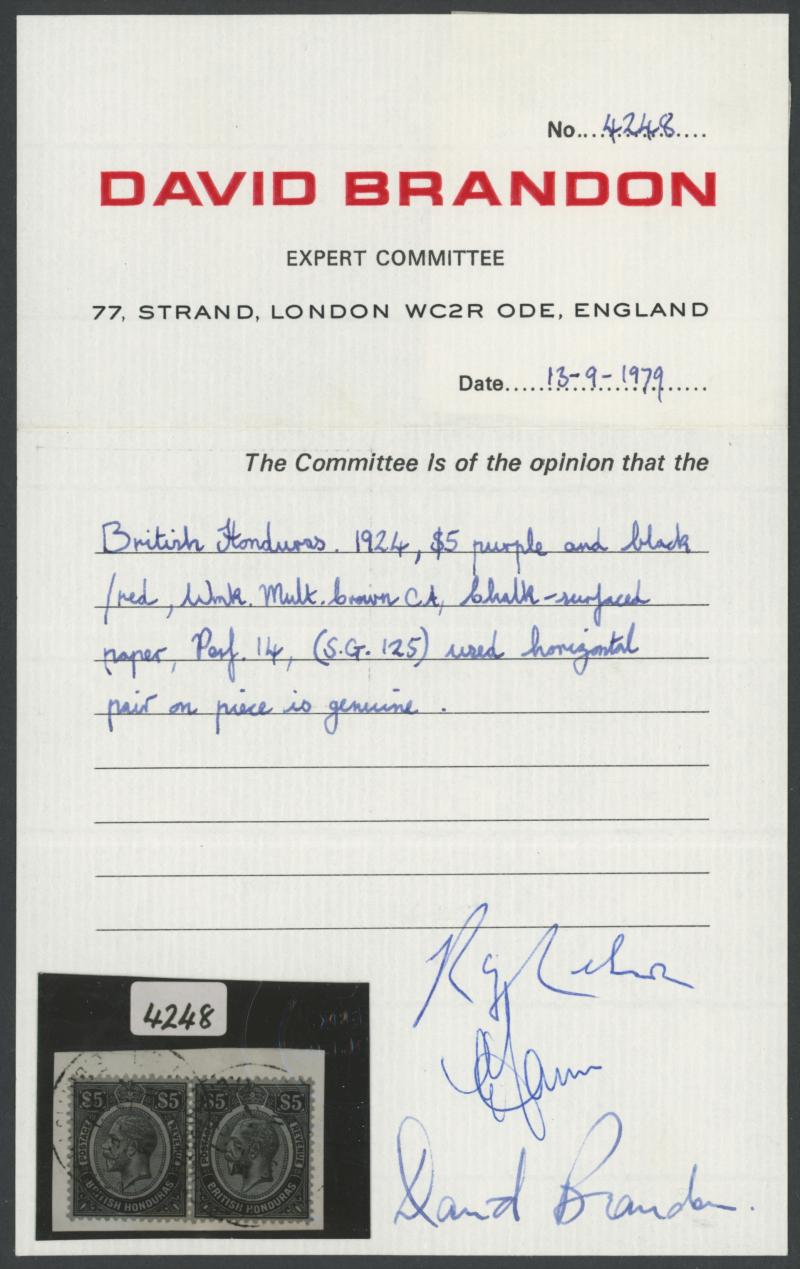 No....4248....
DAVID BRANDON
EXPERT COMMITTEE
77, STRAND, LONDON WC2R ODE, ENGLAND
Date.....13-9-1979......
The Committee is of the opinion that the
British Honduras. 1924, $5 purple and black
/red, Wmk. Mult. Crown CA, Chalk-surfaced
paper, Perf. 14, (S.G. 125) used horizontal
pair on piece is genuine.
4248
$5 $5 $5 $5
POSTAGE REVENUE POSTAGE REVENUE
BRITISH HONDURAS BRITISH HONDURAS
David Brandon.